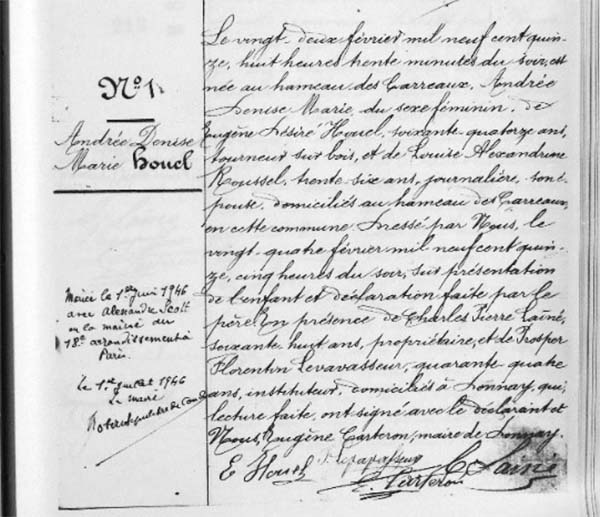 N°1.
Andrée Denise
Marie Houel
Marié le 1er juin 1946
avec Alexandre Scott
en la mairie du
18e arrondissement à
Paris.
Le 1er juillet 1946
Le maire
Le vingt-deux février mil neuf cent quin-
ze, huit heures trente minutes du soir, est
née au hameau des Carreaux, Andrée
Denise Marie, du sexe féminin, de
Eugène Désiré Houel, soixante quatorze ans,
tourneur sur bois, et de Louise Alexandrine
Roussel, trente-six ans, journalière, son é-
pouse, domiciliés au hameau des Carreaux,
en cette commune. Dressé par Nous, le
vingt-quatre février mil neuf cent quin-
ze, cinq heures du soir, sur présentation
de l'enfant et déclaration faite par le
père. En présence de Charles Pierre Lainé,
soixante huit ans, propriétaire, et de Prosper
Florentin Levavasseur, quarante quatre
ans, instituteur, domiciliés à Lonnay, qui,
lecture faite, ont signé avec le déclarant et
Nous, Eugène Carteron, maire de Lonnay.
E Houel P. Levavasseur C Lainé
E. Carteron